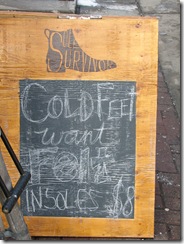 SOLE
SURVIVOR
COLD FEET
want
INSOLES $8